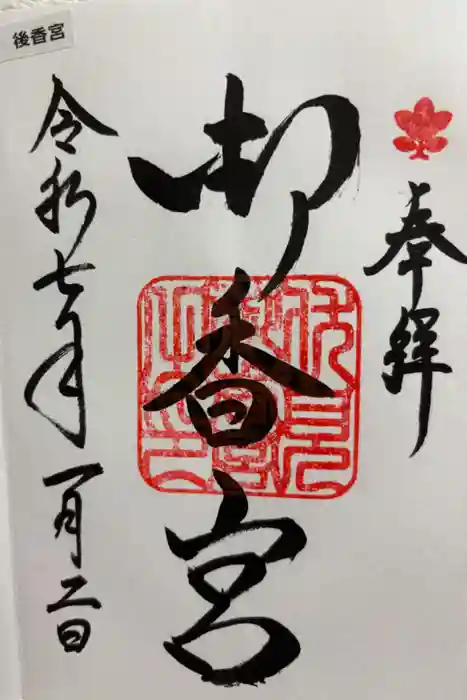 後香宮
奉拝
御香宮
令和七年一月二日